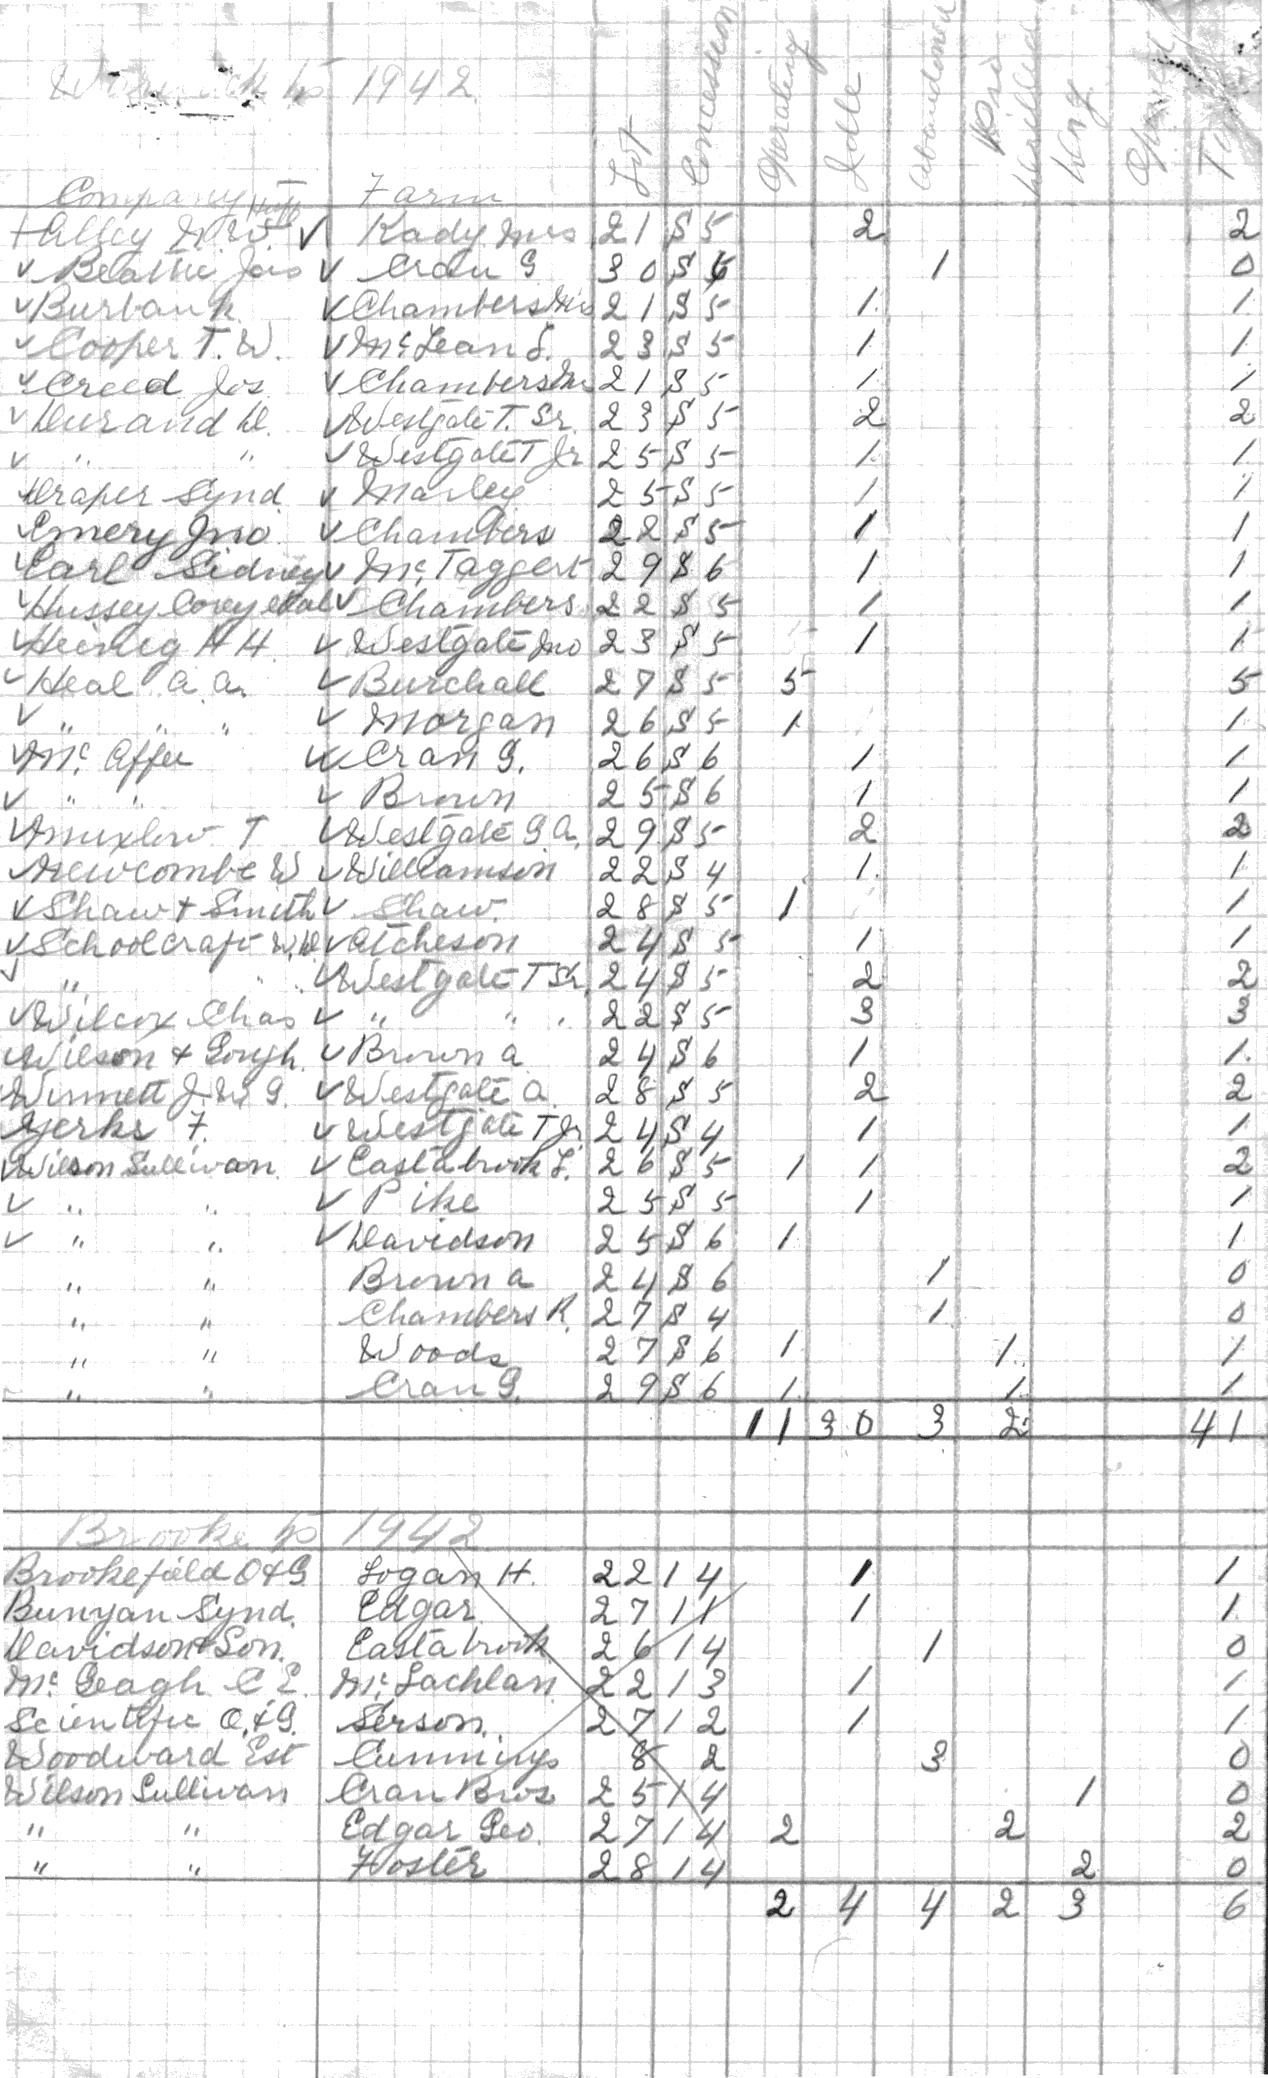 Tp 1942
Company Farm Lot Concession Operating Idle Abandoned Drilled Dry
Alley Kady Mrs 21 S 5 2 2
✓ Beattie Jas ✓ Cran G 30 S 6 1 0
✓ Burbank ✓ Chambers Mrs 21 S 5 1 1
✓ Cooper T. W. ✓ McLean S. 23 S 5 1 1
✓ Creed Jos ✓ Chambers 21 S 5 1 1
✓ Durand D. ✓ Westgate T. Sr. 23 S 5 2 2
✓ " " ✓ Westgate T Jr 25 S 5 1 1
✓ Draper Synd. ✓ Marley 25 S 5 1 1
✓ Emery Jno ✓ Chambers 22 S 5 1 1
✓ Earl Sidney ✓ McTaggert 29 S 6 1 1
✓ Hussey Corey etal ✓ Chambers 22 S 5 1 1
✓ H H. ✓ Westgate Jno 23 S 5 1 1
✓ Heal A. A. ✓ Burchall 27 S 5 5 5
✓ " " " ✓ Morgan 26 S 5 1 1
✓ Mc Affee ✓ Cran G. 26 S 6 1 1
✓ " " ✓ Brown 25 S 6 1 1
✓ Muxlow T ✓ Westgate G. A. 29 S 5 2 2
✓ Newcombe W ✓ Williamson 22 S 4 1 1
✓ Shaw + Smith ✓ Shaw. 28 S 5 1 1
✓ Schoolcraft W. D. ✓ Atcheson 24 S 5 1 1
✓ " " ✓ Westgate T Sr. 24 S 5 2 2
✓ Wilcox Chas ✓ " " " 22 S 5 3 3
✓ Wilson + Gough. ✓ Brown A 24 S 6 1 1
✓ Winnett J. W. G. ✓ Westgate A. 28 S 5 2 2
✓ Yerks F. ✓ Westgate T Jr. 24 S 4 1 1
✓ Wilson Sullivan ✓ Eastabrook L. 26 S 5 1 1 2
✓ " " ✓ Pike 25 S 5 1 1
✓ " " ✓ Davidson 25 S 6 1 1
" " Brown A 24 S 6 1 0
" " Chambers R. 27 S 4 1 0
" " Woods 27 S 6 1 1 1
" " Cran G. 29 S 6 1 1 1
11 30 3 2 41
Brooke Tp 1942
Brookefield O+G Logan H. 22 14 1 1
Bunyan Synd. Edgar 27 11 1 1
Davidson + Son. Eastabrook 26 14 1 0
Mc Geagh C E. McLachlan 22 13 1 1
Scientific O. + G. Serson. 27 12 1 1
Woodward Est Cummings 8 2 3 0
Wilson Sullivan Cran Bros 25 14 1 0
" " Edgar Geo. 27 14 2 2 2
" " Foster 28 14 2 0
2 4 4 2 3 6